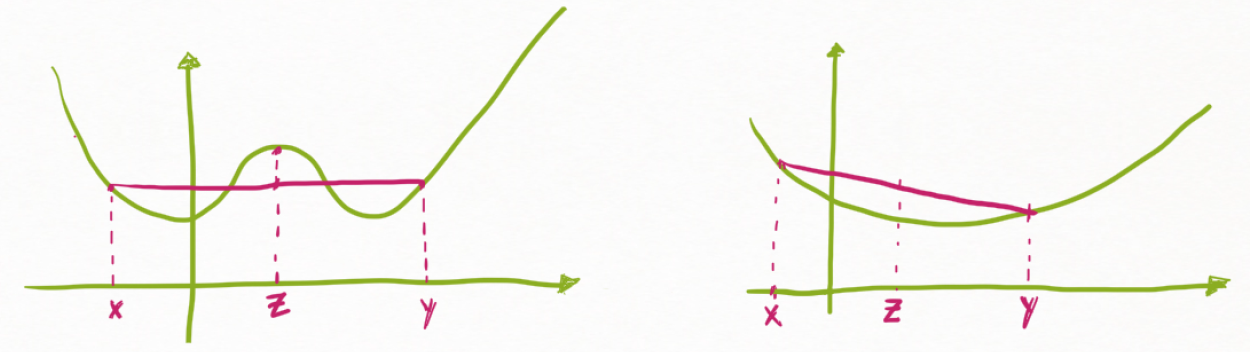 x z y
x z y